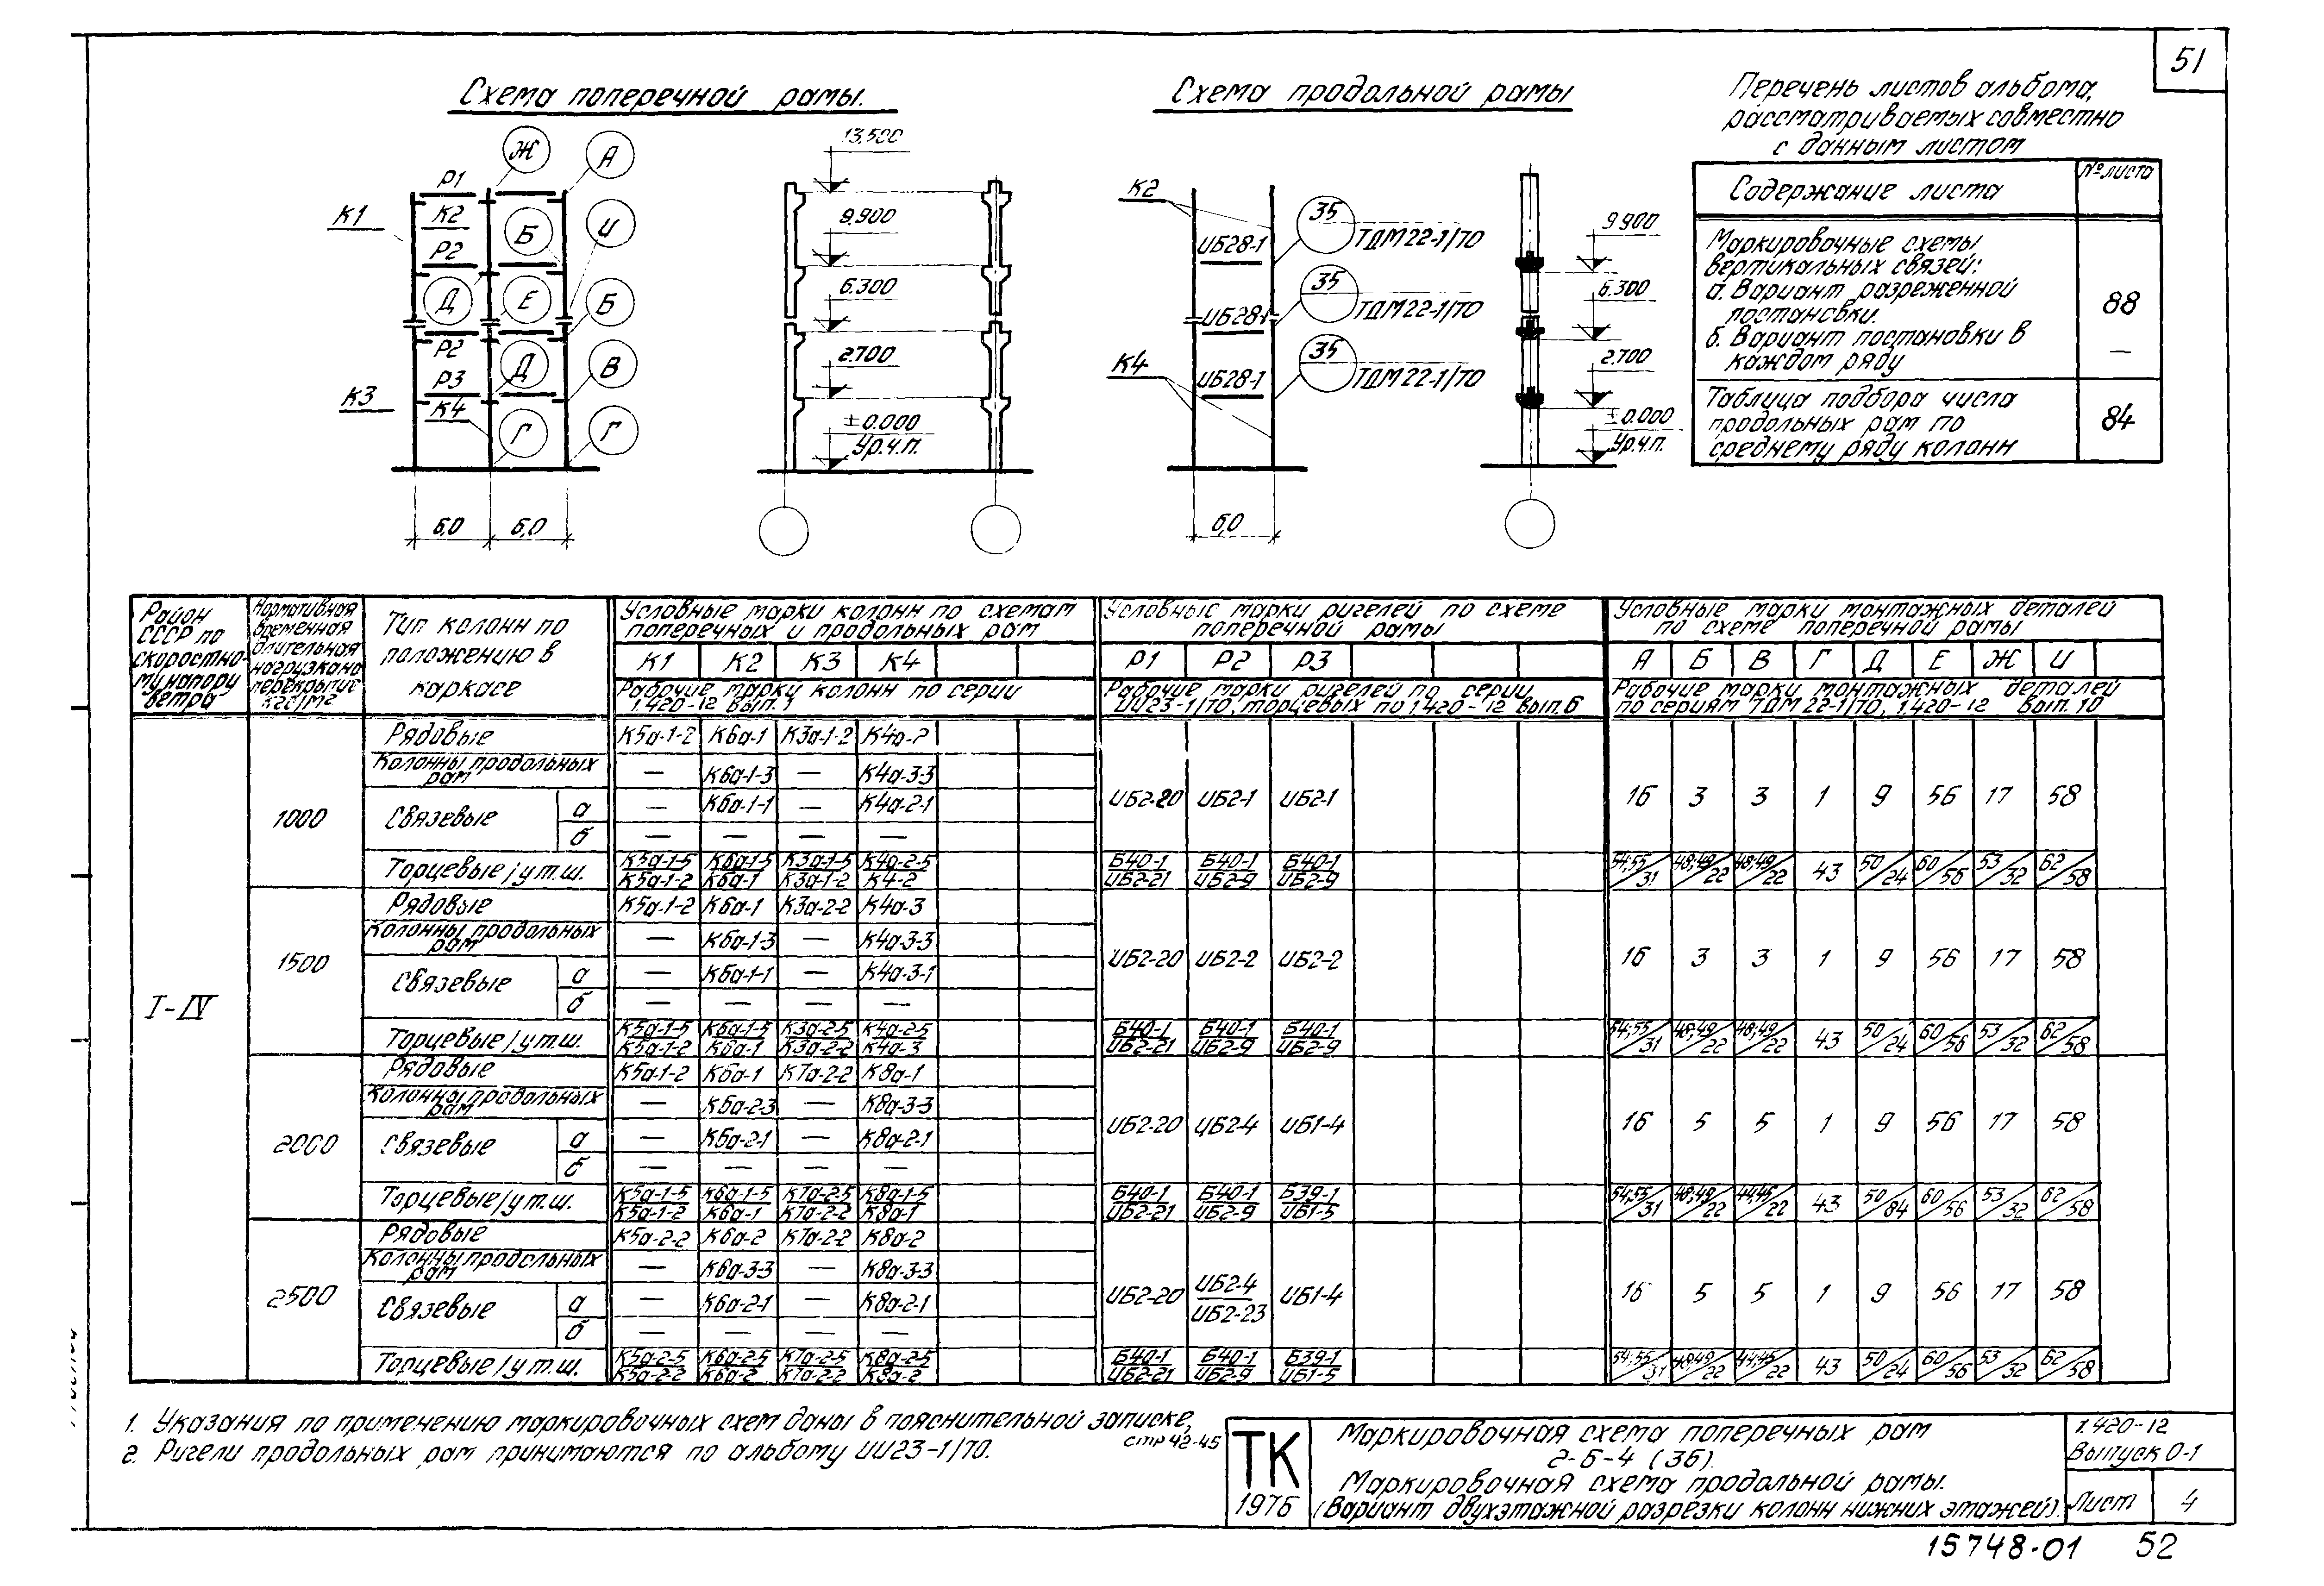 51
Схема поперечной рамы.
Схема продольной рамы
Перечень листов альбома,
рассматриваемых совместно
с данным листом
Содержание листа
№ листа
Маркировочные схемы
вертикальных связей:
а. Вариант разреженной
постановки.
88
б. Вариант постановки в
каждом ряду
—
Таблица подбора числа
продольных рам по
среднему ряду колонн
84
Ж А
Р1
К1 К2 Б И
Р2
Д Е Б
Р2
Р3 Д В
К3 К4
Г Г
6,0 6,0
13.500
9.900
6.300
2.700
±0.000
Ур.ч.п.
К2
ИБ28-1 35 ТДМ22-1/70
ИБ28-1 35 ТДМ22-1/70
К4
ИБ28-1 35 ТДМ22-1/70
6,0
9.900
6.300
2.700
±0.000
Ур.ч.п.
Район
СССР по
скоростно-
му напору
ветра
Нормативная
временная
длительная
нагрузка на
перекрытие
кгс/м2
Тип колонн по
положению в
каркасе
Условные марки колонн по схемам
поперечных и продольных рам
К1 К2 К3 К4
Рабочие марки колонн по серии
1.420-12 вып. 1
Условные марки ригелей по схеме
поперечной рамы
Р1 Р2 Р3
Рабочие марки ригелей по серии
ИИ23-1/70, торцевых по 1.420-12 вып. 6
Условные марки монтажных деталей
по схеме поперечной рамы
А Б В Г Д Е Ж И
Рабочие марки монтажных деталей
по сериям ТДМ 22-1/70, 1.420-12 вып. 10
I-IV
1000
Рядовые К5а-1-2 К6а-1 К3а-1-2 К4а-2
Колонны продольных
рам — К6а-1-3 — К4а-3-3
Связевые а — К6а-1-1 — К4а-2-1
б — — — —
ИБ2-20 ИБ2-1 ИБ2-1 16 3 3 1 9 56 17 58
Торцевые/у т.ш. К5а-1-5 К6а-1-5 К3а-1-5 К4а-2-5 Б40-1 Б40-1 Б40-1 54;55/31 48;49/22 48;49/22 43 50/24 60/56 53/32 62/58
К5а-1-2 К6а-1 К3а-1-2 К4-2 ИБ2-21 ИБ2-9 ИБ2-9
1500
Рядовые К5а-1-2 К6а-1 К3а-2-2 К4а-3
Колонны продольных
рам — К6а-1-3 — К4а-3-3
Связевые а — К6а-1-1 — К4а-3-1
б — — — —
ИБ2-20 ИБ2-2 ИБ2-2 16 3 3 1 9 56 17 58
Торцевые/у т.ш. К5а-1-5 К6а-1-5 К3а-2-5 К4а-2-5 Б40-1 Б40-1 Б40-1 54;55/31 48;49/22 48;49/22 43 50/24 60/56 53/32 62/58
К5а-1-2 К6а-1 К3а-2-2 К4а-3 ИБ2-21 ИБ2-9 ИБ2-9
2000
Рядовые К5а-1-2 К6а-1 К7а-2-2 К8а-1
Колонны продольных
рам — К6а-2-3 — К8а-3-3
Связевые а — К6а-2-1 — К8а-2-1
б — — — —
ИБ2-20 ИБ2-4 ИБ1-4 16 5 5 1 9 56 17 58
Торцевые/у т.ш. К5а-1-5 К6а-1-5 К7а-2-5 К8а-1-5 Б40-1 Б40-1 Б39-1 54;55/31 48;49/22 44;45/22 43 50/84 60/56 53/32 62/58
К5а-1-2 К6а-1 К7а-2-2 К8а-1 ИБ2-21 ИБ2-9 ИБ1-5
2500
Рядовые К5а-2-2 К6а-2 К7а-2-2 К8а-2
Колонны продольных
рам — К6а-3-3 — К8а-3-3
Связевые а — К6а-2-1 — К8а-2-1
б — — — —
ИБ2-20 ИБ2-4 ИБ1-4 16 5 5 1 9 56 17 58
ИБ2-23
Торцевые/у т.ш. К5а-2-5 К6а-2-5 К7а-2-5 К8а-2-5 Б40-1 Б40-1 Б39-1 54;55/31 48;49/22 44;45/22 43 50/24 60/56 53/32 62/58
К5а-2-2 К6а-2 К7а-2-2 К8а-2 ИБ2-21 ИБ2-9 ИБ1-5
1. Указания по применению маркировочных схем даны в пояснительной записке,
стр 42-45
2. Ригели продольных рам принимаются по альбому ИИ23-1/70.
ТК
1976
Маркировочная схема поперечных рам
2-6-4 (36).
Маркировочная схема продольной рамы.
(Вариант двухэтажной разрезки колонн нижних этажей).
1.420-12
Выпуск 0-1
Лист 4
15748-01 52